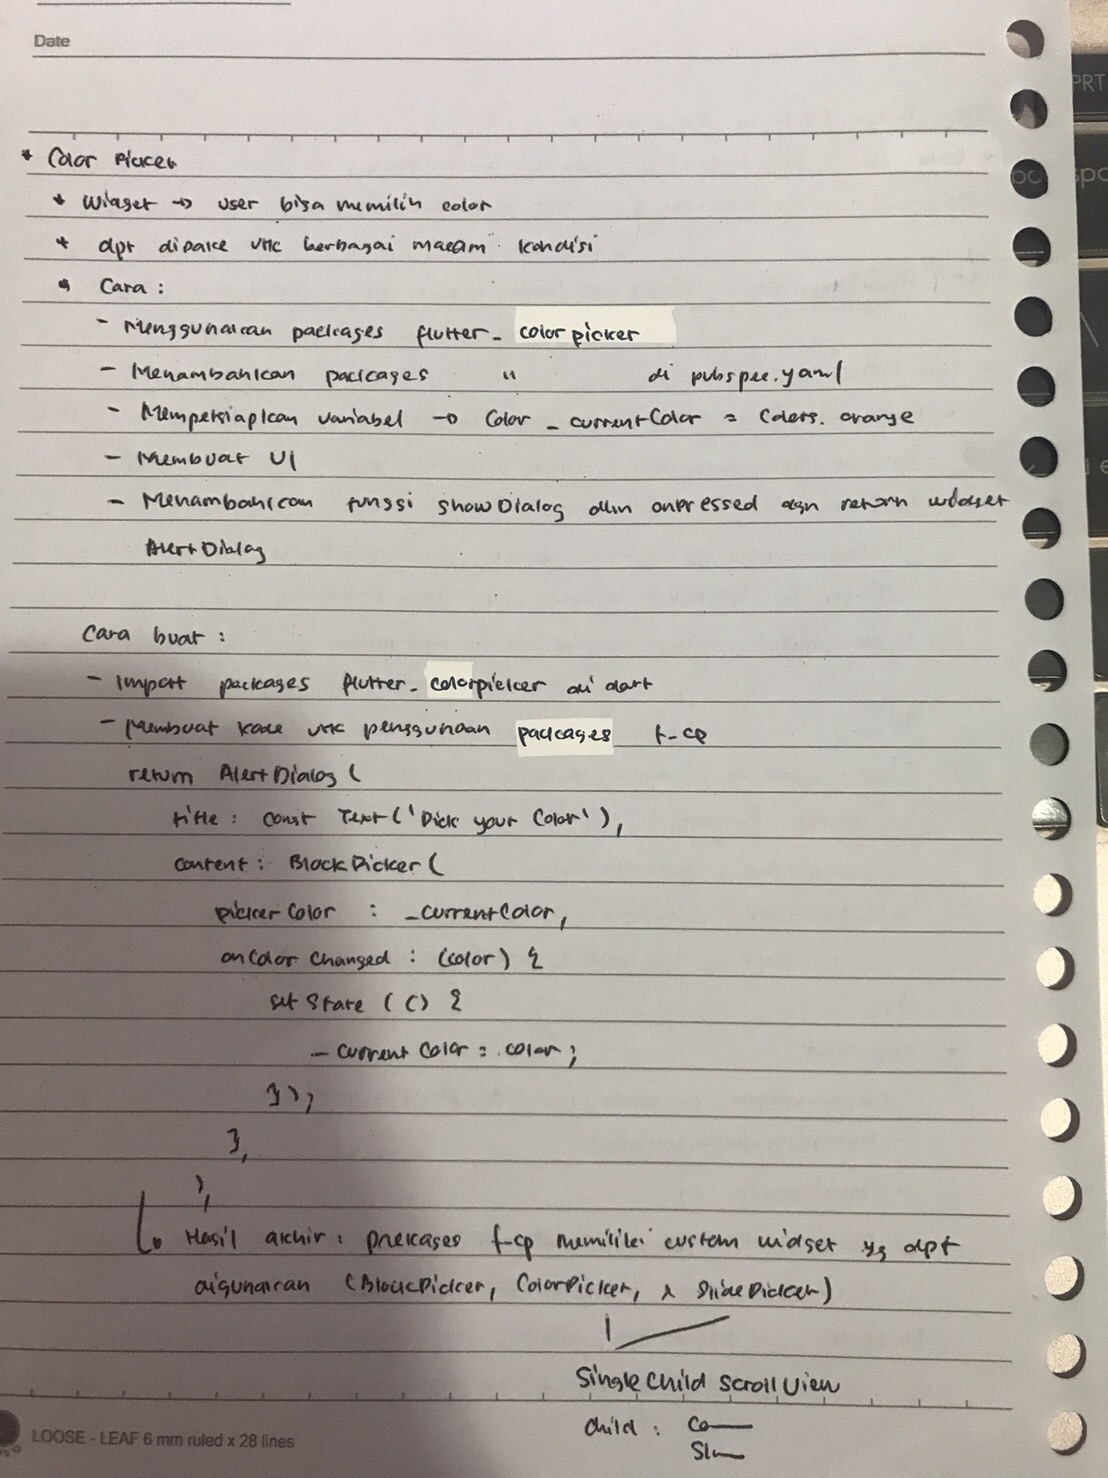 Date
* Color Picker
* Widget → user bisa memilih color
* dpt dipake utk berbagai macam kondisi
* Cara :
- Menggunakan packages flutter_ color picker
- Menambahkan packages " di pubspec.yaml
- Mempersiapkan variabel → Color _currentColor = Colors.orange
- Membuat UI
- Menambahkan fungsi showDialog dlm onpressed dgn return widget
AlertDialog
Cara buat :
- Import packages flutter_colorpicker di dart
- Membuat kode utk penggunaan packages f-cp
return AlertDialog (
title : const Text ('Pick your Color'),
content : BlockPicker (
pickerColor : _currentColor,
onColorChanged : (color) {
setState ( () {
_currentColor = color ;
} ) ;
} ,
) ,
↳ Hasil akhir : packages f-cp memiliki custom widget yg dpt
digunakan (BlockPicker, ColorPicker, & SlidePicker)
SingleChildScrollView
child : Co
Sl
PRT
LOOSE - LEAF 6 mm ruled x 28 lines